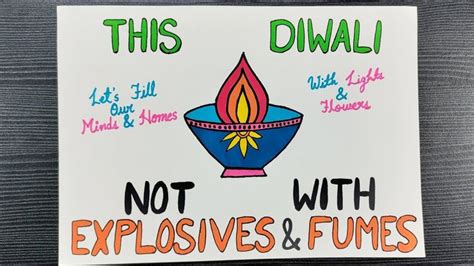 THIS DIWALI
Let's Fill
Our
Minds & Homes
With Lights
&
Flowers
NOT WITH
EXPLOSIVES & FUMES